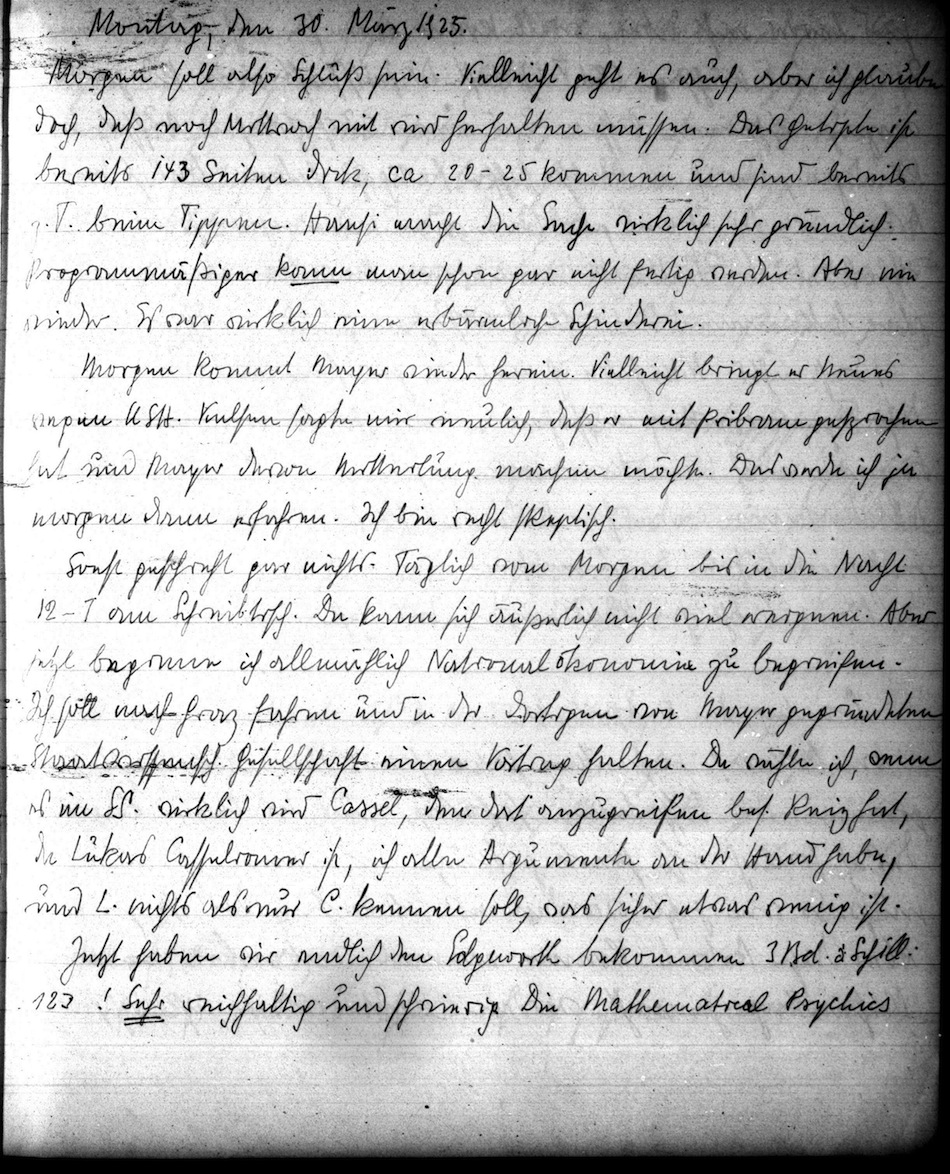 Montag, den 30. März 1925.
Morgen soll also Schluß sein. Vielleicht geht es auch, aber ich glaube
doch, daß noch Mittwoch mit wird herhalten müssen. Das Getippte ist
bereits 143 Seiten dick, ca 20-25 kommen und sind bereits
z.T. beim Tippen. Hansi macht die Sache wirklich sehr gründlich.
Programmäßiger kann man schon gar nicht fertig werden. Aber nie
wieder. Es war wirklich eine erbärmliche Schinderei.
Morgen kommt Mayer wieder herein. Vielleicht bringt er Neues
wegen USA. Kelsen sagte mir neulich, daß er mit Pribram gesprochen
hat und Mayer davon Mitteilung machen möchte. Das werde ich ja
morgen dann erfahren. Ich bin recht skeptisch.
Sonst geschieht gar nichts. Täglich vom Morgen bis in die Nacht
12-1 am Schreibtisch. Da kann sich äußerlich nicht viel ereignen. Aber
jetzt beginne ich allmählich Nationalökonomie zu begreifen.
Ich soll nach Graz fahren und in der dortigen von Mayer gegründeten
Staatswissensch. Gesellschaft einen Vortrag halten. Da wähle ich, wenn
es im SS. wirklich wird Cassel, den dort anzugreifen bes. Reiz hat,
da Lukas Casselianer ist, ich alle Argumente an der Hand habe,
und L. nichts als nur C. kennen soll, was sicher etwas wenig ist.
Jetzt haben wir endlich den Edgeworth bekommen 3 Bd. à Schill.
123 ! Sehr reichhaltig und schwierig Die Mathematical Psychics